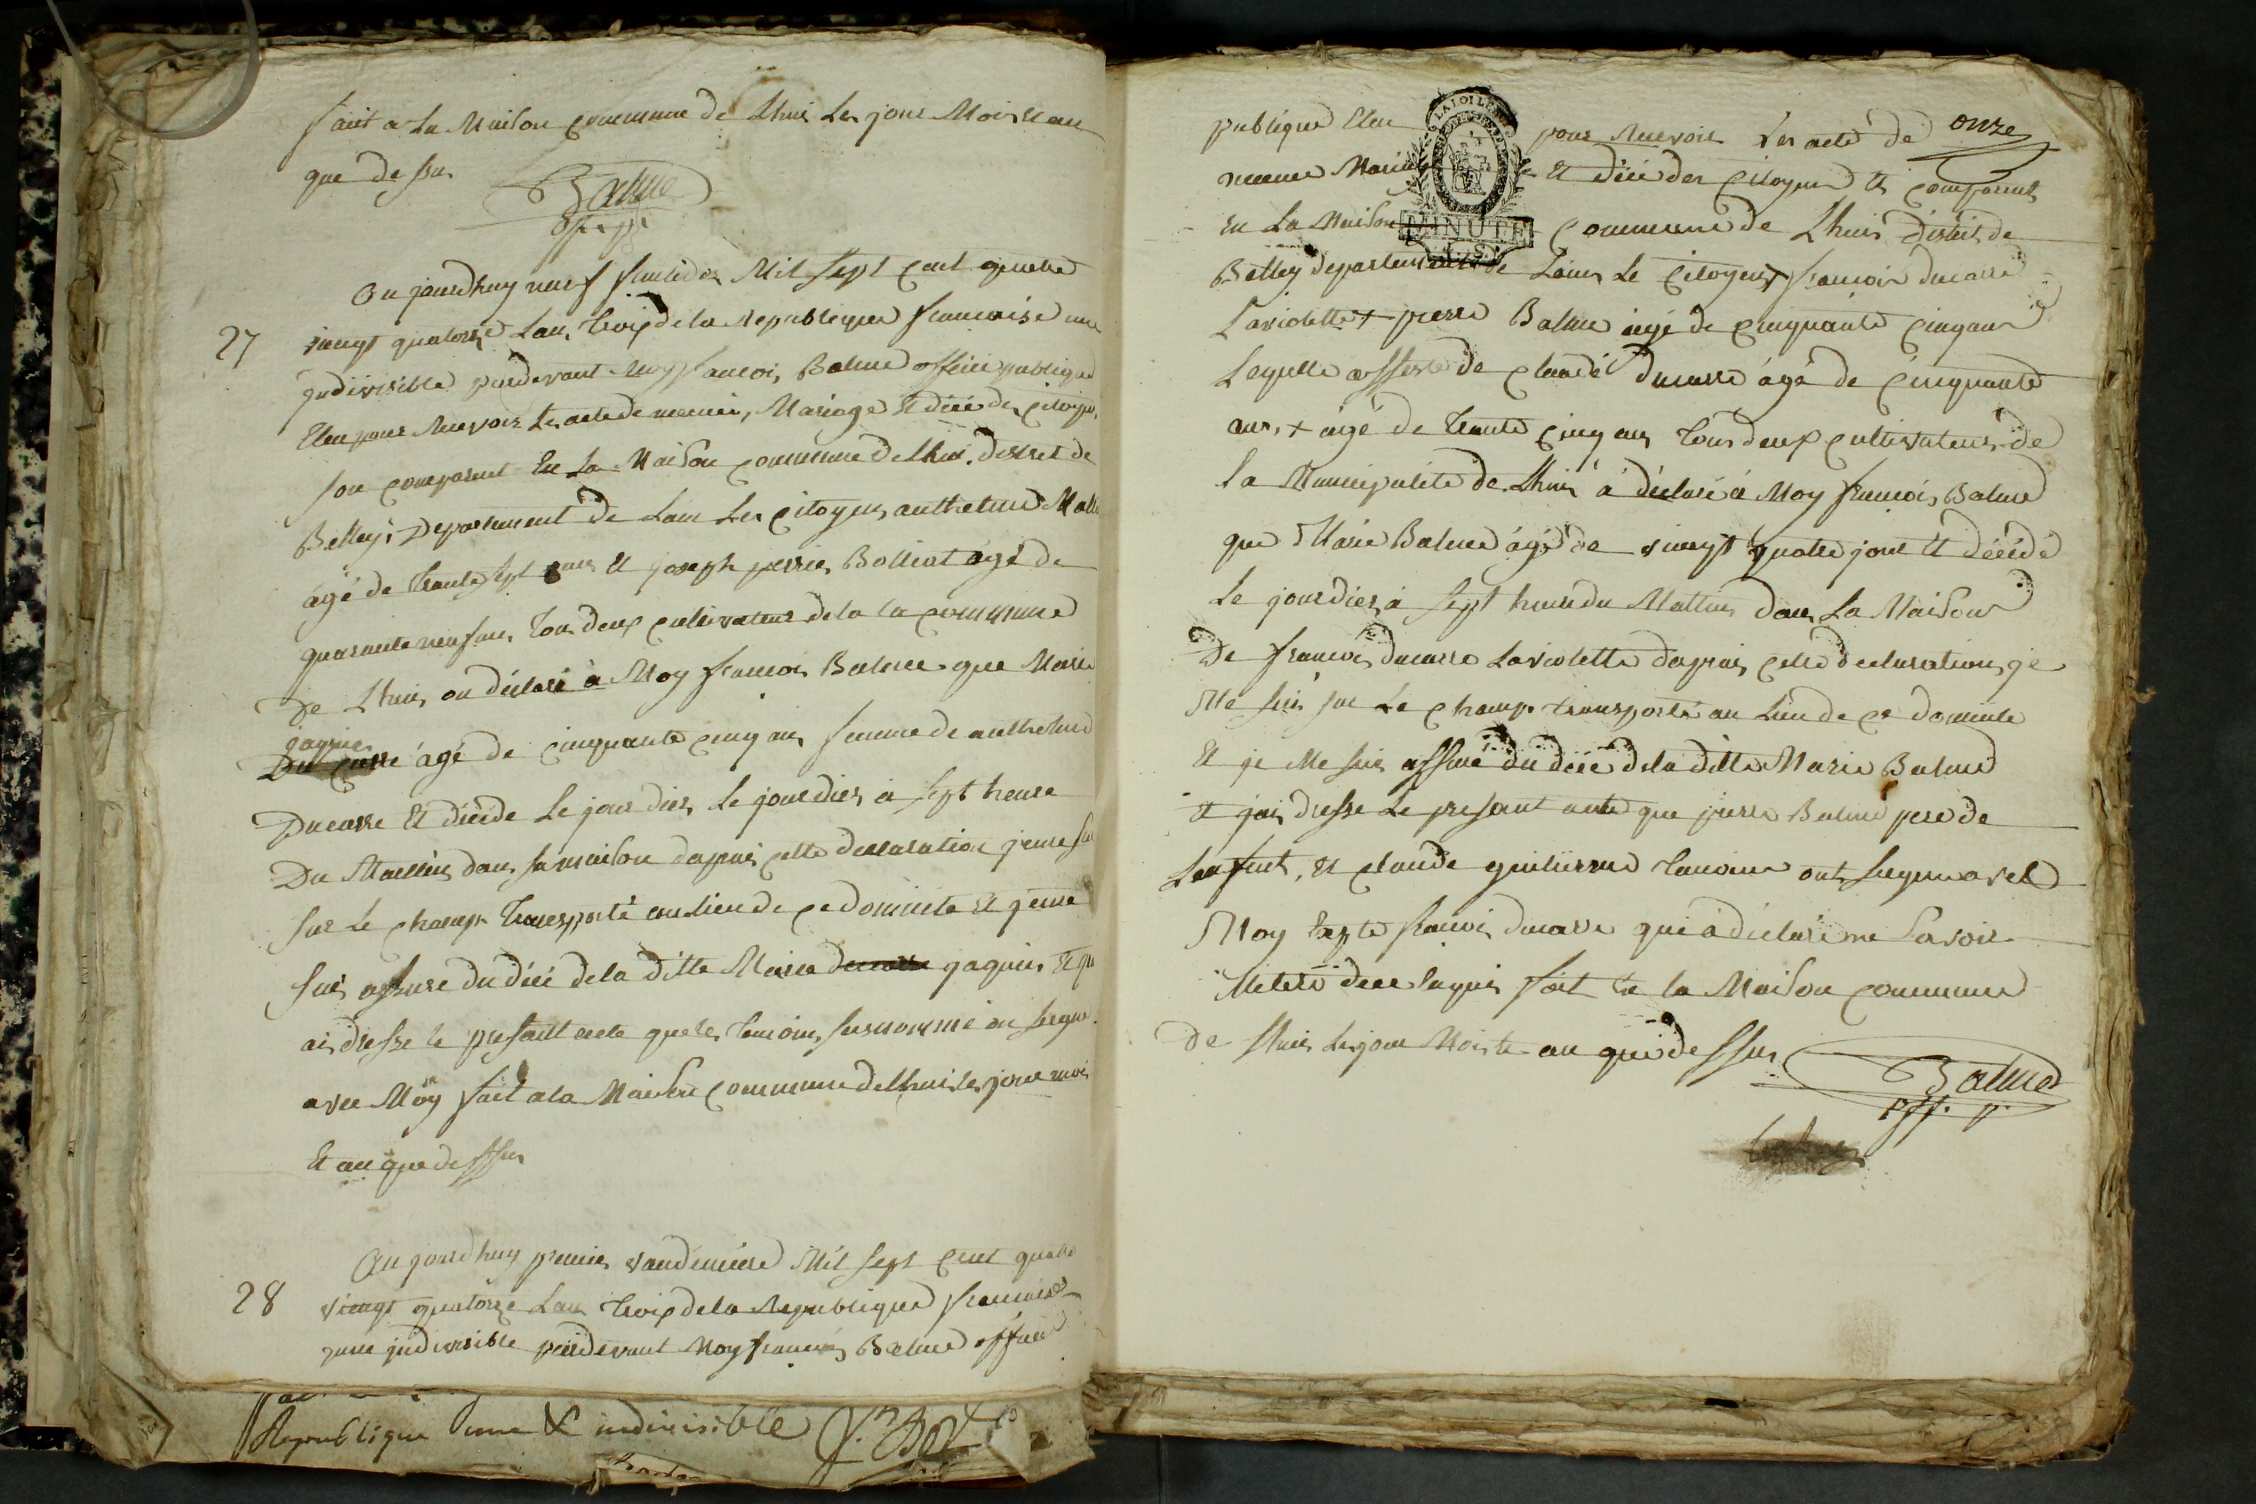 fait a La Maison commune de Lhuis Les jour Mois et an
que dessus
Balme
off. p.
27
Au jourdhuy neuf fructidor Mil sept cent quatre
vingt quatorze Lan trois de la Republique francaise une
indivisible pardevant Moy francois Balme officié publique
Eleu pour recevoir Les acte de Mariage et décé des citoyens
son comparent En La Maison commune de Lhuis district de
Belley Departement de Lain Les citoyens anthelme
âgé de trente sept ans et joseph perrier Bolliat âgé de
quarante neuf ans tous deux cultivateur de la la commune
De Lhuis on déclaré à Moy francois Balme que Marie
jaquier
Ducarre âgé de cinquante cinq ans femme de anthelme
Ducarre Et décéde Le jour dier Le jour dier à sept heure
Du Mattin dans sa maison daprais cette declaration je me suis
sur Le champ transporté au lieu de ce domicile Et je me
suis assure du décé de la ditte Marie ducarre jaquier Et j
ai dresse le presant acte que les temoins susnommé on signe
avec Moy fait a la Maison commune de Lhuis les jour mois
Et an que dessus
28
Au jourdhuy premier vandemiere Mil sept cent quatre
vingt quatorze Lan trois de la Republique francaise
une jndivisible pardevant Moy francois Balme officié
Republique une & indivisible
onze
LA LOI LE ROI
MINUTE
publique Eleu pour recevoir Les acte de
Mariage Et décé des citoyens Et comparent
En La Maison commune de Lhuis distrit de
Belley departement de Lain Le citoyens francois ducarre
Laviolette + pierre Balme âgé de cinquante cinq ans
Lequelle assisté de claude ducarre âgé de cinquante
ans, + âgé de trente cinq ans tous deux cultivateurs de
la Municipalité de Lhuis à déclaré à Moy francois Balme
que Marie Balme âgé de vingt quatre jour Et décédé
Le jour dier à sept heure du Mattin dans La Maison
De francois ducarre Laviolette daprais cette declaration je
Me suis sur Le champ transporté au Lieu de ce domicile
Et je Me suis assuré du décé de la ditte Marie Balme
Et jai dresse Le presant acte que pierre Balme pere de
Lenfent, Et claude guilierme temoins ont signe avec
Moy francois ducarre qui à déclaré ne savoir
de ce laquis fait a la Maison commune
De Lhuis Les jour Mois et an que dessus
Balme
off. p.